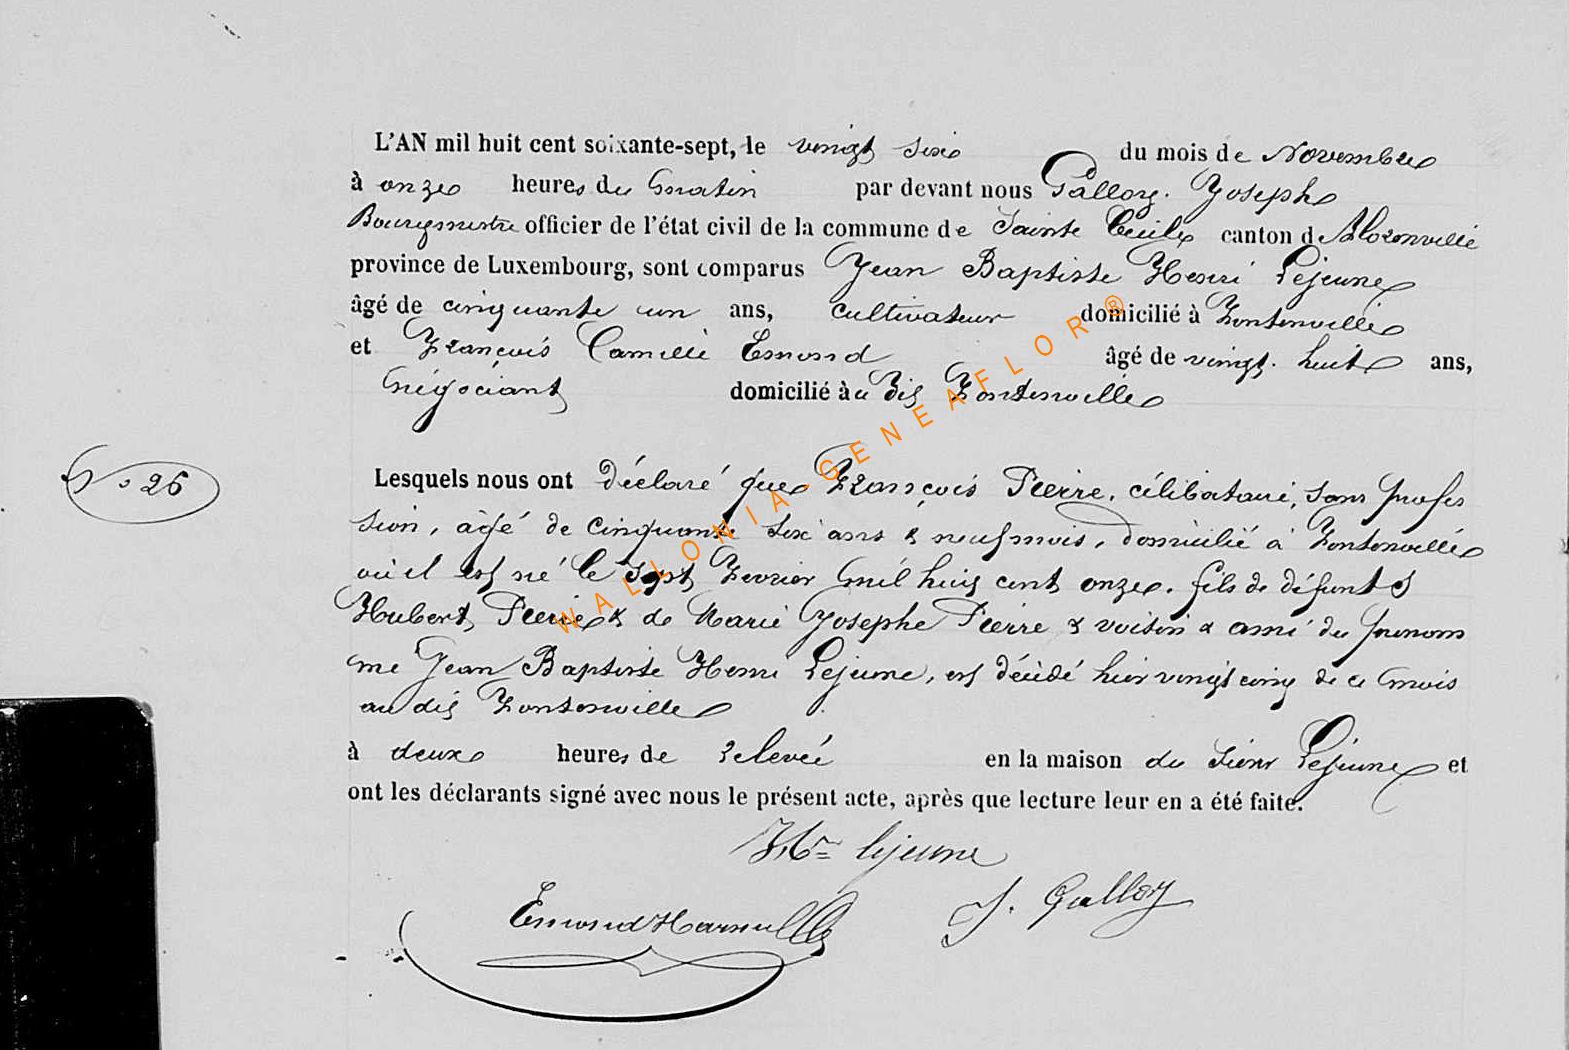 L'AN mil huit cent soixante-sept, le vingt six du mois de Novembre
à onze heures du matin par devant nous Galloy Joseph
Bourgmestre officier de l'état civil de la commune de Sainte Cecile canton de Florenville
province de Luxembourg, sont comparus Jean Baptiste Henri Lejeune
âgé de cinquante un ans, cultivateur domicilié à Fontenoille
et François Camille Emond âgé de vingt huit ans,
négociant domicilié au dit Fontenoille
N° 26
Lesquels nous ont déclaré que François Pierre, célibataire, sans profes
sion, âgé de cinquante six ans & neuf mois, domicilié à Fontenoille
où il est né le sept Fevrier mil huit cent onze. fils de défunts
Hubert Pierre & de Marie Josephe Pierre & voisin & ami du prenom
mé Jean Baptiste Henri Lejeune, est décédé hier vingt cinq de ce mois
au dit Fontenoille
à deux heures de relevée en la maison du sieur Lejeune et
ont les déclarants signé avec nous le présent acte, après que lecture leur en a été faite.
Hri Lejeune
J. Galloy
Emond
WALLONIA-GENEAFLOR ®